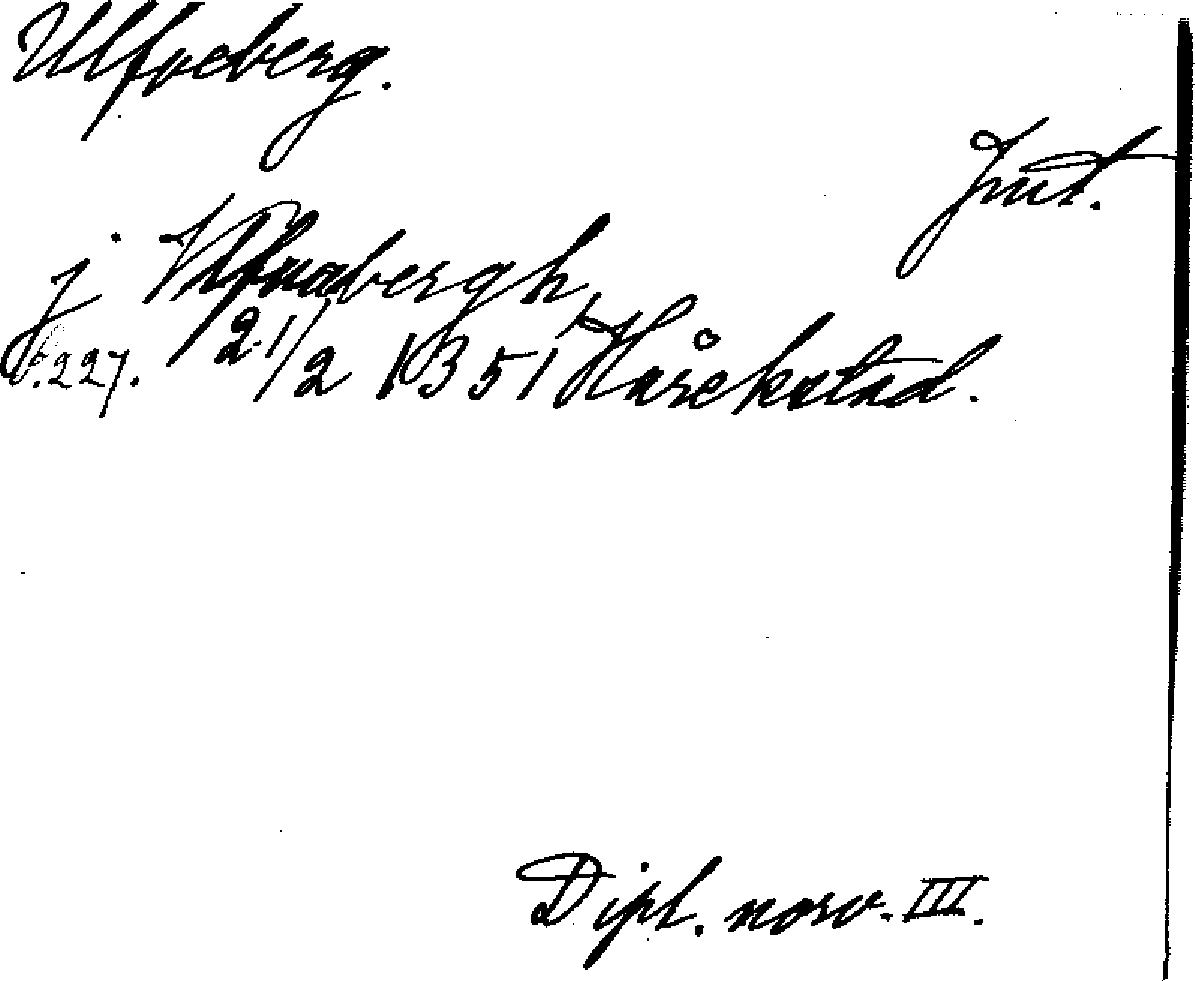 Ulfveberg.
Jmt.
j Vlfuabergh,
s. 227. 21/2 1351 Hårekstad.
Dipl. norv. III.